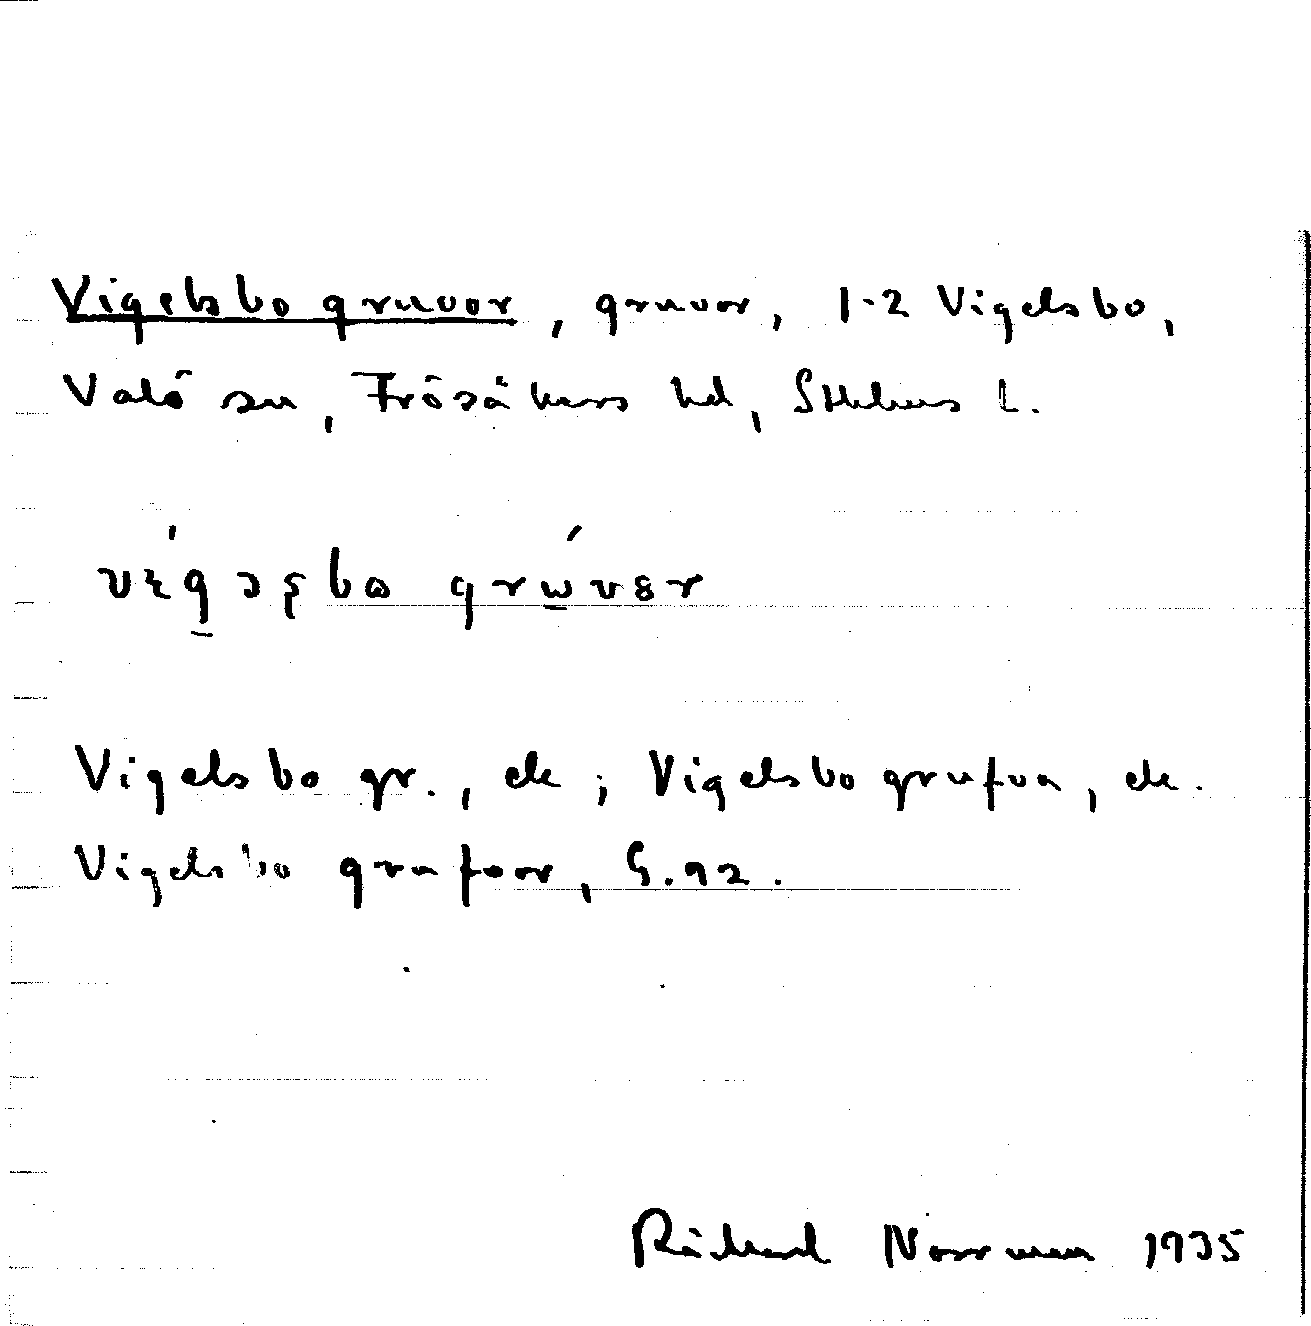 Vigelsbo gruvor, gruvor, 1-2 Vigelsbo,
Valö sn, Frösåkers hd, Sthlms l.
vɪ́gəʂbɷ grɯ́vɛr
Vigelsbo gr., ek; Vigelsbo grufva, ek.
Vigelsbo grufvor, G.92.
Richard Norrman 1935